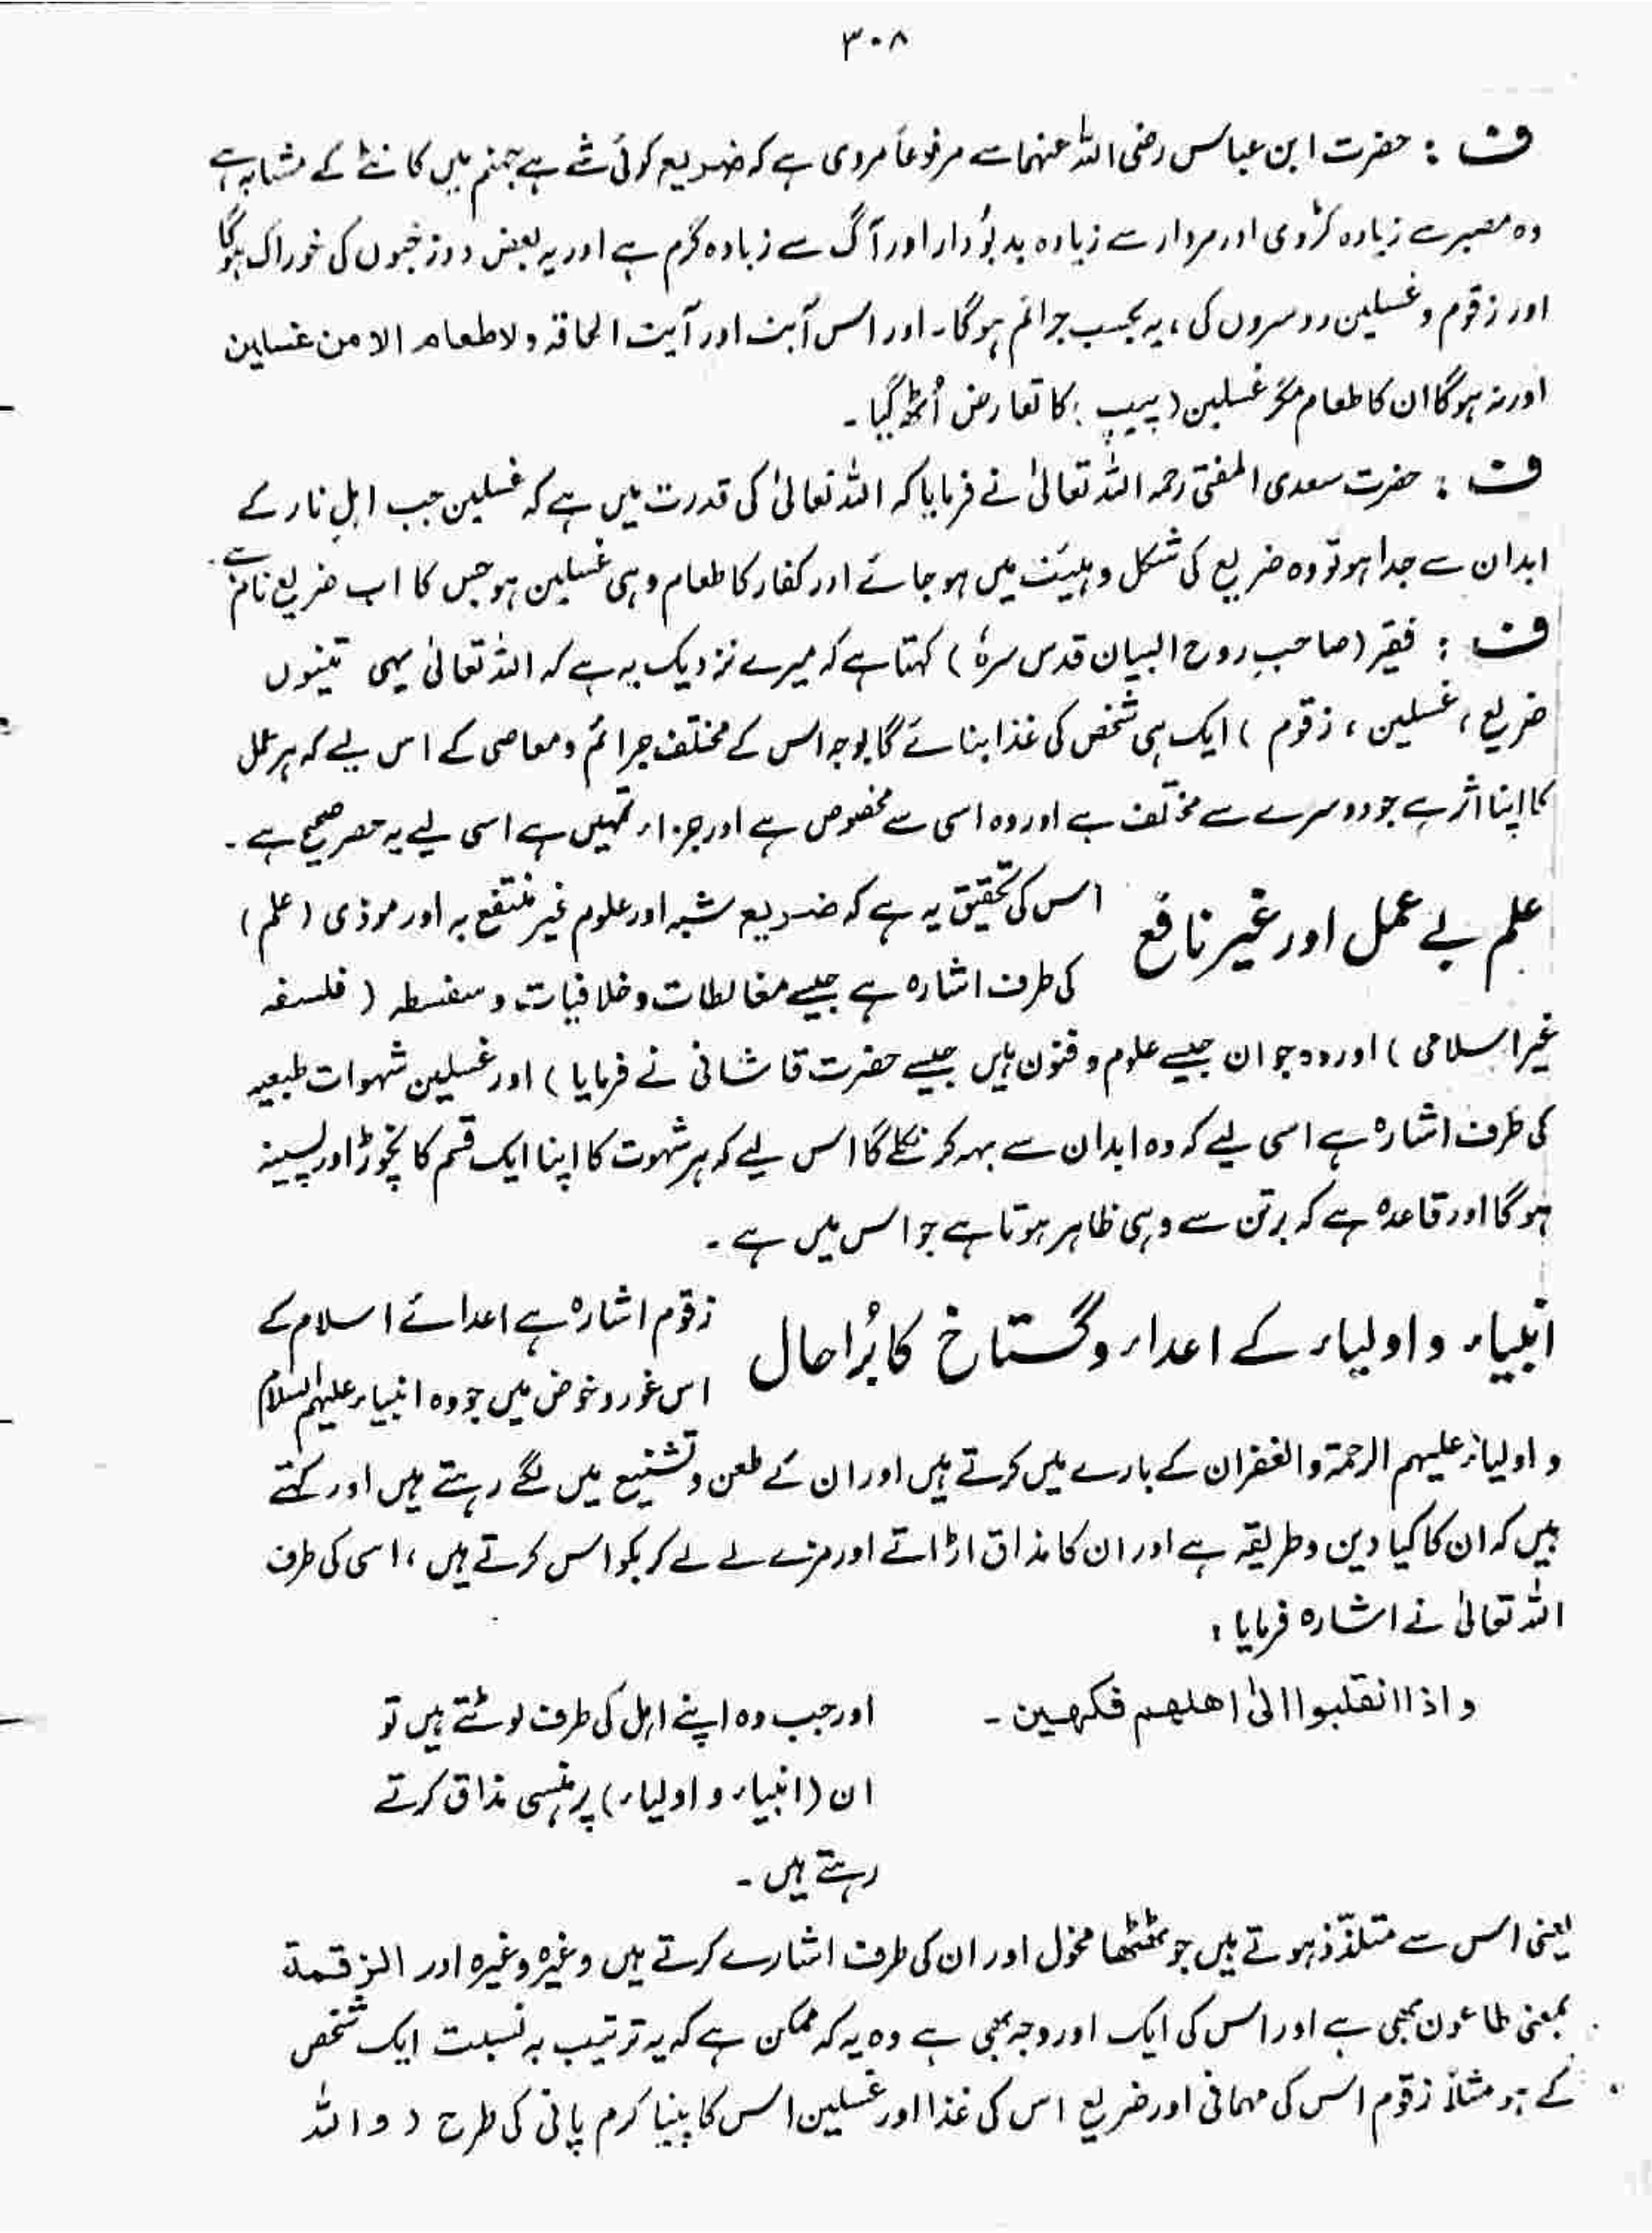 ۳۰۸
ف : حضرت ابن عباس رضی اللہ عنہما سے مرفوعاً مروی ہے کہ ضریع کوئی شے ہے جہنم میں کانٹے کے مشابہ ہے
وہ مصبر سے زیادہ کڑوی اور مردار سے زیادہ بدبُو دار اور آگ سے زیادہ گرم ہے اور یہ بعض دوزخیوں کی خوراک ہوگا
اور زقوم و غسلین دوسروں کی ، یہ بحسب جرائم ہوگا۔ اور اس آیت اور آیت الحاقہ ولا طعام الا من غسلین
اور نہ ہوگا ان کا طعام مگر غسلین (پیپ) کا تعارض اُٹھ گیا ۔
ف : حضرت سعدی المفتی رحمہ اللہ تعالیٰ نے فرمایا کہ اللہ تعالیٰ کی قدرت میں ہے کہ غسلین جب اہلِ نار کے
ابدان سے جدا ہو تو وہ ضریع کی شکل و ہیئت میں ہو جائے اور کفار کا طعام وہی غسلین ہو جس کا اب ضریع نام ہے ۔
ف : فقیر (صاحبِ روح البیان قدس سرہٗ) کہتا ہے کہ میرے نزدیک یہ ہے کہ اللہ تعالیٰ یہی تینوں
ضریع ، غسلین ، زقوم ) ایک ہی شخص کی غذا بنائے گا بوجہ اس کے مختلف جرائم و معاصی کے اس لیے کہ ہر عمل
کا اپنا اثر ہے جو دوسرے سے مختلف ہے اور وہ اسی سے مخصوص ہے اور جزاء تمہیں ہے اسی لیے یہ حصر صحیح ہے ۔
علم بے عمل اور غیر نافع
اس کی تحقیق یہ ہے کہ ضریع شبہ اور علوم غیر منتفع بہ اور موذی (علم)
کی طرف اشارہ ہے جیسے مغالطات و خلافیات و سفسطہ ( فلسفہ
غیر اسلامی ) اور وہ جو ان جیسے علوم و فنون ہیں جیسے حضرت قاشانی نے فرمایا ) اور غسلین شہوات طبعیہ
کی طرف اشارہ ہے اسی لیے کہ وہ ابدان سے بہہ کر نکلے گا اس لیے کہ ہر شہوت کا اپنا ایک قسم کا نچوڑ اور پسینہ
ہوگا اور قاعدہ ہے کہ برتن سے وہی ظاہر ہوتا ہے جو اس میں ہے ۔
انبیاء و اولیاء کے اعداء و گستاخ کا بُرا حال
زقوم اشارہ ہے اعدائے اسلام کے
اس غور و خوض میں جو وہ انبیاء علیہم السلام
و اولیاء علیہم الرحمۃ والغفران کے بارے میں کرتے ہیں اور ان کے طعن و تشنیع میں لگے رہتے ہیں اور کہتے
ہیں کہ ان کا کیا دین و طریقہ ہے اور ان کا مذاق اڑاتے اور مزے لے لے کر بکواس کرتے ہیں ، اسی کی طرف
اللہ تعالیٰ نے اشارہ فرمایا :
واذا انقلبوا الیٰ اھلھم فکہین ۔
اور جب وہ اپنے اہل کی طرف لوٹتے ہیں تو
ان (انبیاء و اولیاء) پر ہنسی مذاق کرتے
رہتے ہیں ۔
یعنی اس سے متلذّذ ہوتے ہیں جو ٹھٹھا مخول اور ان کی طرف اشارے کرتے ہیں وغیرہ وغیرہ اور الزقمۃ
بمعنی طاعون بھی ہے اور اس کی ایک اور وجہ بھی ہے وہ یہ کہ ممکن ہے کہ یہ ترتیب بہ نسبت ایک شخص
کے ہو مثلاً زقوم اس کی مہمانی اور ضریع اس کی غذا اور غسلین اس کا پینا گرم پانی کی طرح ( واللہ